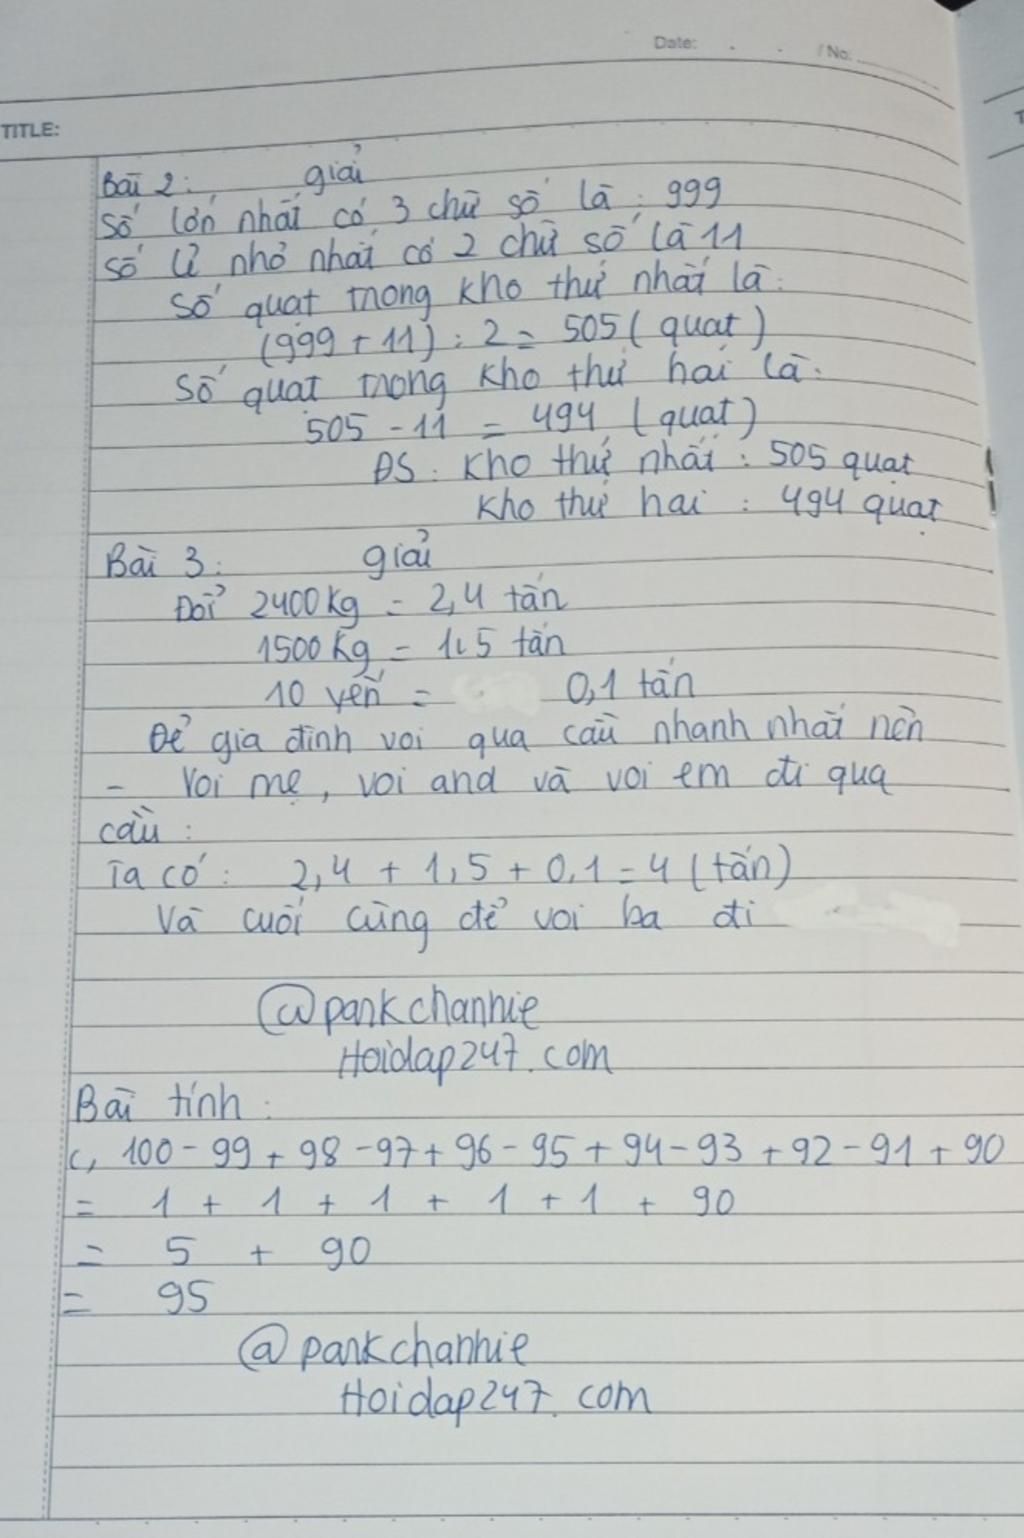 Date: . . / No:
TITLE:
Bài 2: giải
Số lớn nhất có 3 chữ số là : 999
Số lẻ nhỏ nhất có 2 chữ số là 11
Số quạt trong kho thứ nhất là :
(999 + 11) : 2 = 505 ( quạt )
Số quạt trong kho thứ hai là :
505 - 11 = 494 ( quạt )
ĐS : Kho thứ nhất : 505 quạt
Kho thứ hai : 494 quạt
Bài 3 : giải
Đổi 2400 kg = 2,4 tấn
1500 kg = 1,5 tấn
10 yến = 0,1 tấn
Để gia đình voi qua cầu nhanh nhất nên
- Voi mẹ , voi and và voi em đi qua
cầu :
Ta có : 2,4 + 1,5 + 0,1 = 4 ( tấn )
Và cuối cùng để voi ba đi
@parkchanhie
Hoidap247.com
Bài tính :
c, 100 - 99 + 98 - 97 + 96 - 95 + 94 - 93 + 92 - 91 + 90
= 1 + 1 + 1 + 1 + 1 + 90
= 5 + 90
= 95
@parkchanhie
Hoidap247.com